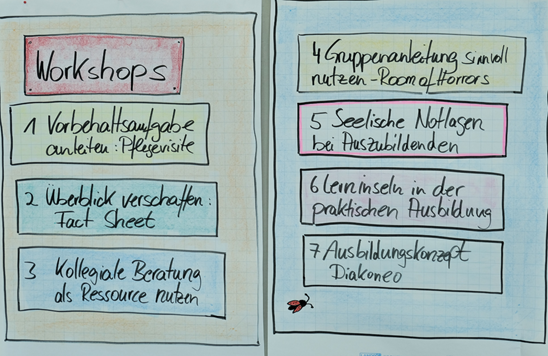 Workshops
1 Vorbehaltsaufgabe
anleiten: Pflegevisite
2 Überblick verschaffen:
Fact Sheet
3 Kollegiale Beratung
als Ressource nutzen
4 Gruppenanleitung sinnvoll
nutzen - Room of Horrors
5 Seelische Notlagen
bei Auszubildenden
6 Lerninseln in der
praktischen Ausbildung
7 Ausbildungskonzept
Diakoneo